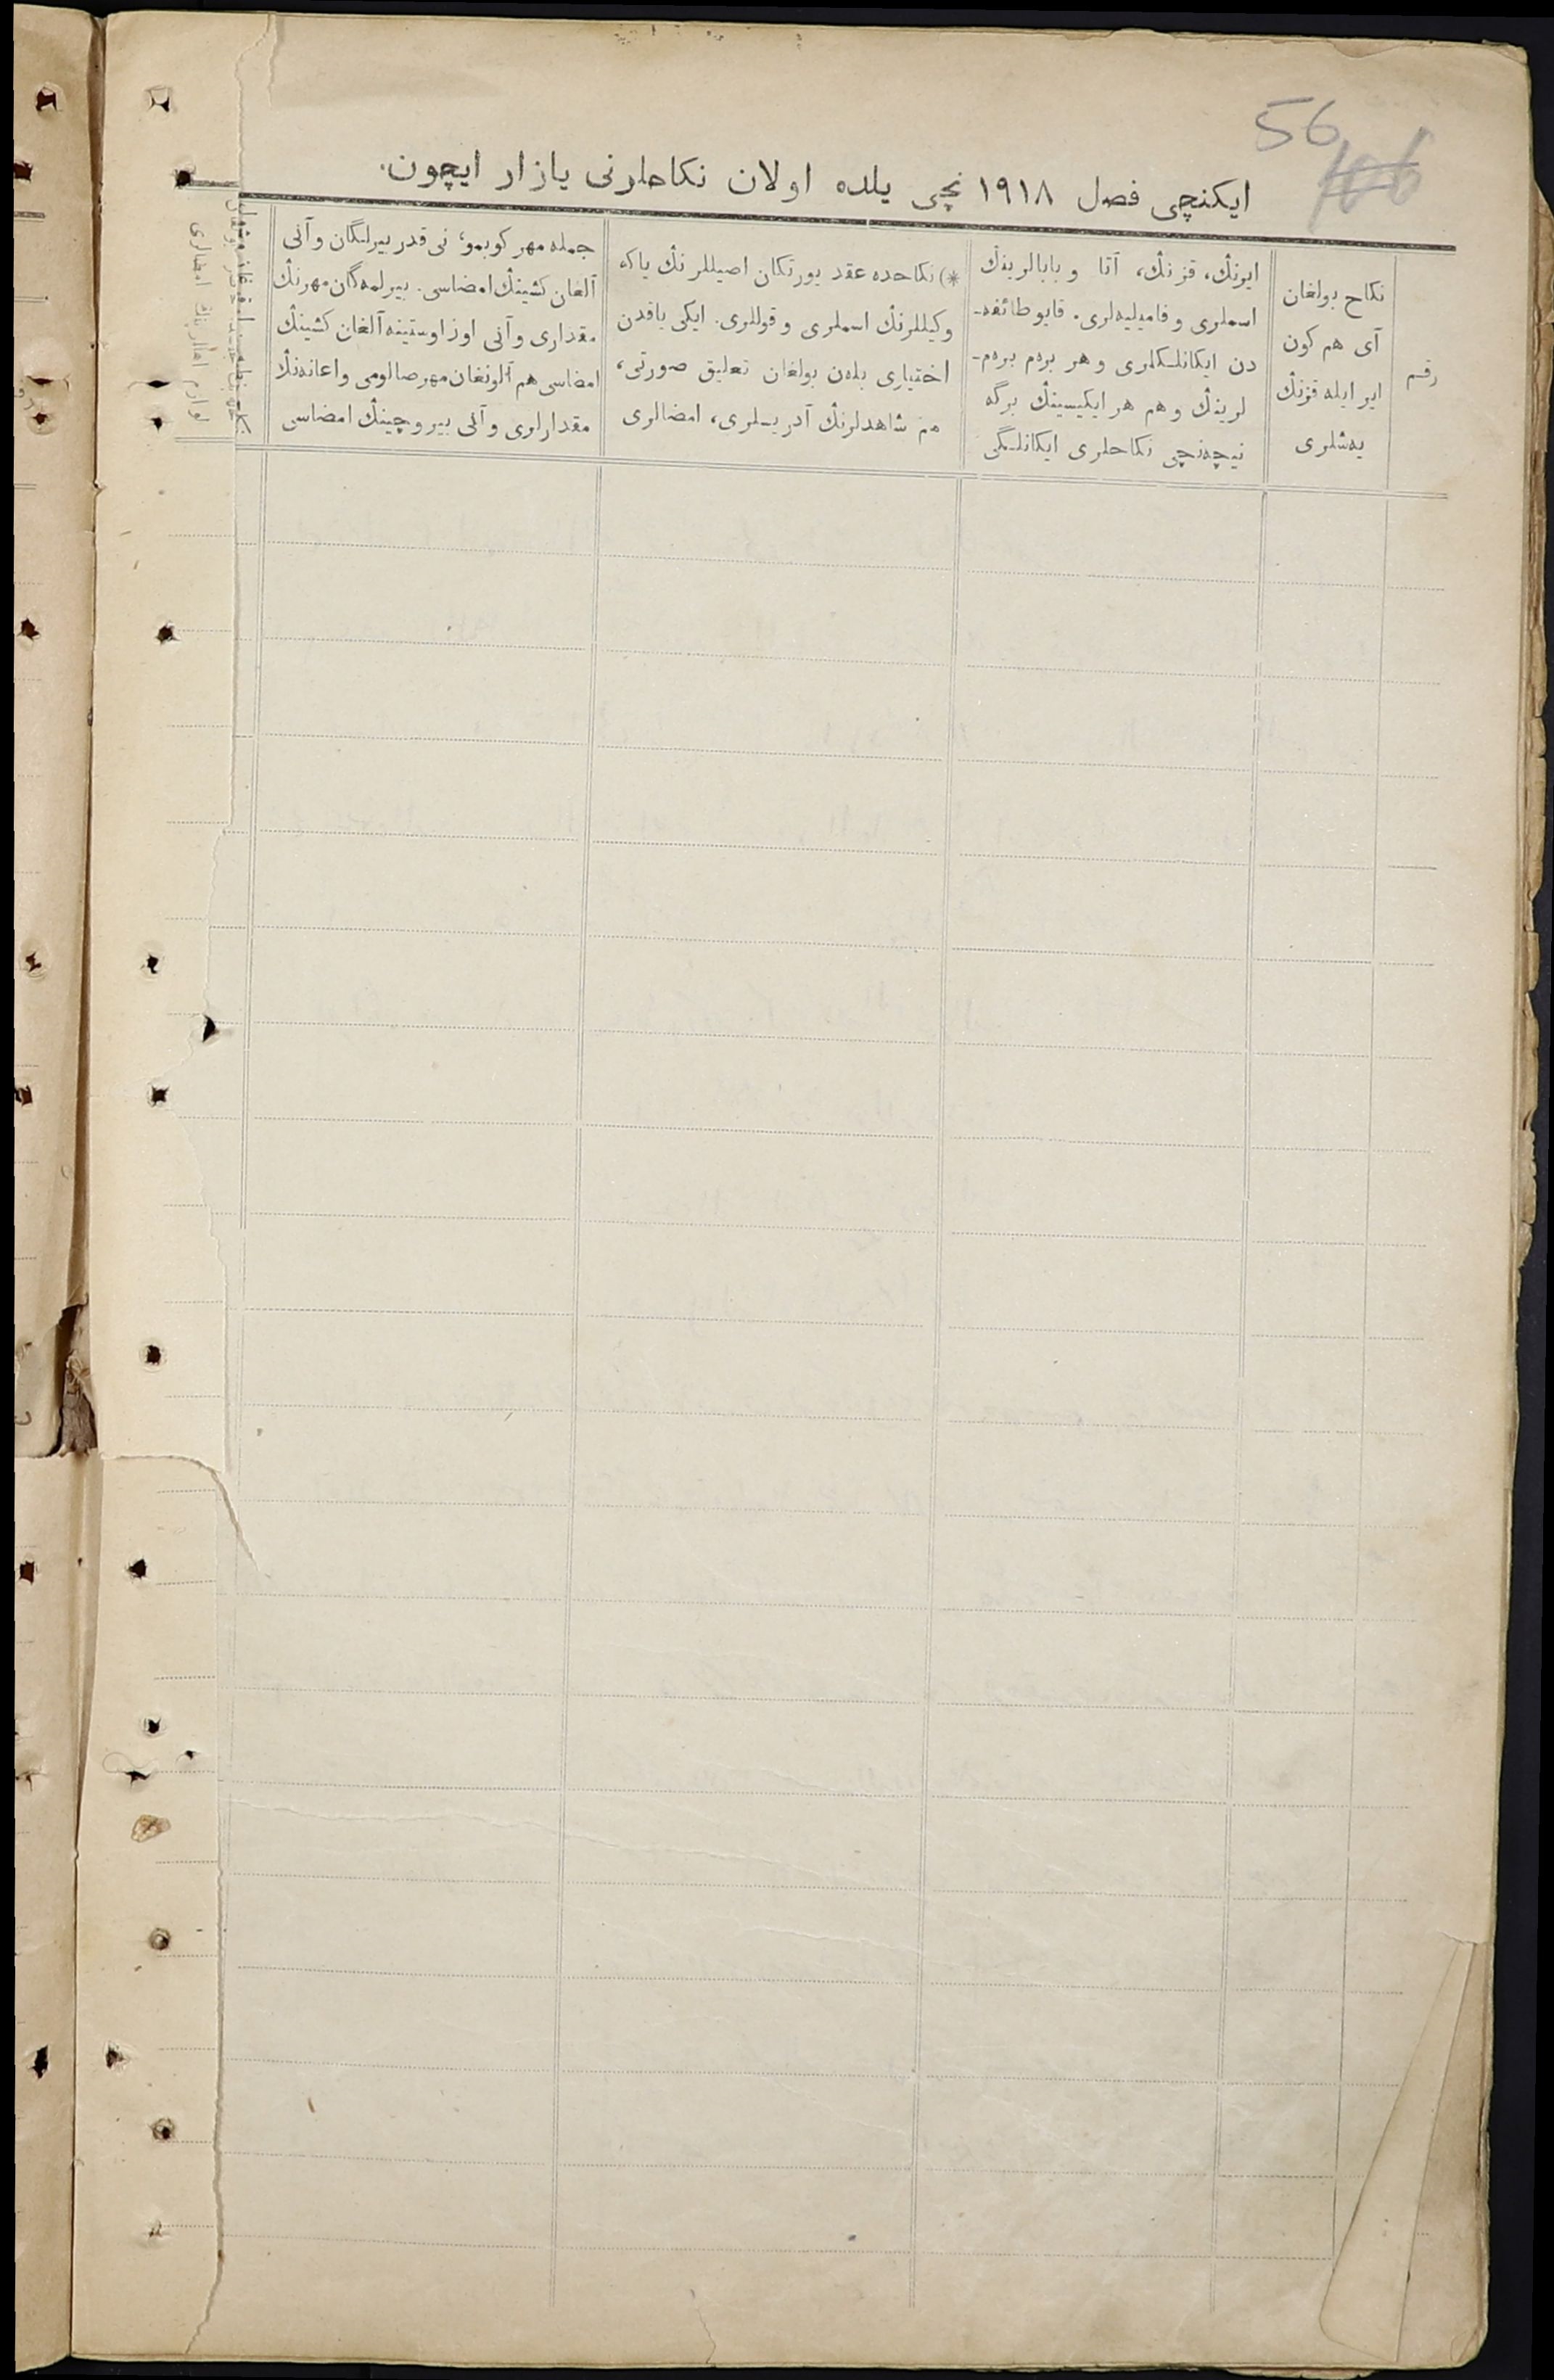 56
ایکنچی فصل ۱۹۱۸ نچی یلده اولان نکاحلرنی یازار ایچون.
رقم
نکاح بولغان
آی هم کون
ایر ایله قزنڭ
یەشلری
ایرنڭ، قزنڭ، آتا و بابالرینڭ
اسملری و فامیلیەلری. قایو طائفە-
دن ایکانلکلری و هر برەم برەم-
لرینڭ و هم هر ایکیسینڭ برگە
نیچەنچی نکاحلری ایکانلیگی
*) نکاحده عقد یورتکان اصیللرنڭ یاکە
وکیللرنڭ اسملری و قوللری. ایکی یاقدن
اختیاری بلەن بولغان تعلیق صورتی،
هم شاهدلرنڭ آدریسلری، امضالری
جمله مهر کوبمو، نی قدر بیرلگان و آنی
آلغان کشینڭ امضاسی. بیرلمەگان مهرنڭ
مقداری و آنی اوز اوستینه آلغان کشینڭ
امضاسی هم آلونغان مهر صالومی و اعانەنڭ
مقدارلری و آنی بیروچینڭ امضاسی